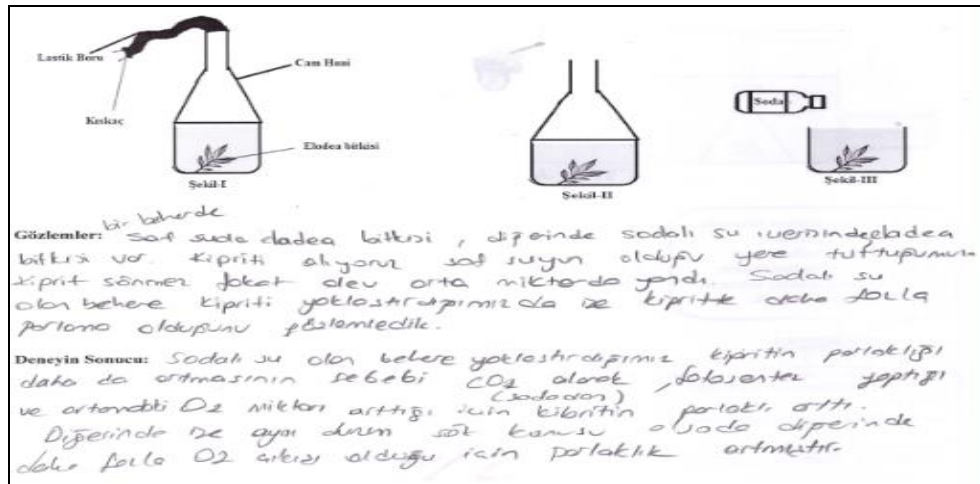 Lastik Boru
Cam Huni
Kıskaç
Elodea bitkisi
Şekil-I
Şekil-II
Soda
Şekil-III
bir beherde
Gözlemler: Saf suda eladea bitkisi, diğerinde sodalı su içerisinde eladea
bitkisi var. Kipriti alıyoruz saf suyun olduğu yere tuttuğumuzda
kiprit sönmez fakat alev orta miktarda yandı. Sodalı su
olan behere kipriti yaklaştırdığımızda ise kipritte daha fazla
parlama olduğunu gözlemledik.
Deneyin Sonucu: Sodalı su olan behere yaklaştırdığımız kipritin parlaklığı
daha da artmasının sebebi CO2 alarak, fotosentez yaptığı
(sodadan)
ve ortamdaki O2 miktarı arttığı için kibritin parlaklı arttı.
Diğerinde ise aynı durum söz konusu olsada diğerinde
daha fazla O2 çıkışı olduğu için parlaklık artmıştır.